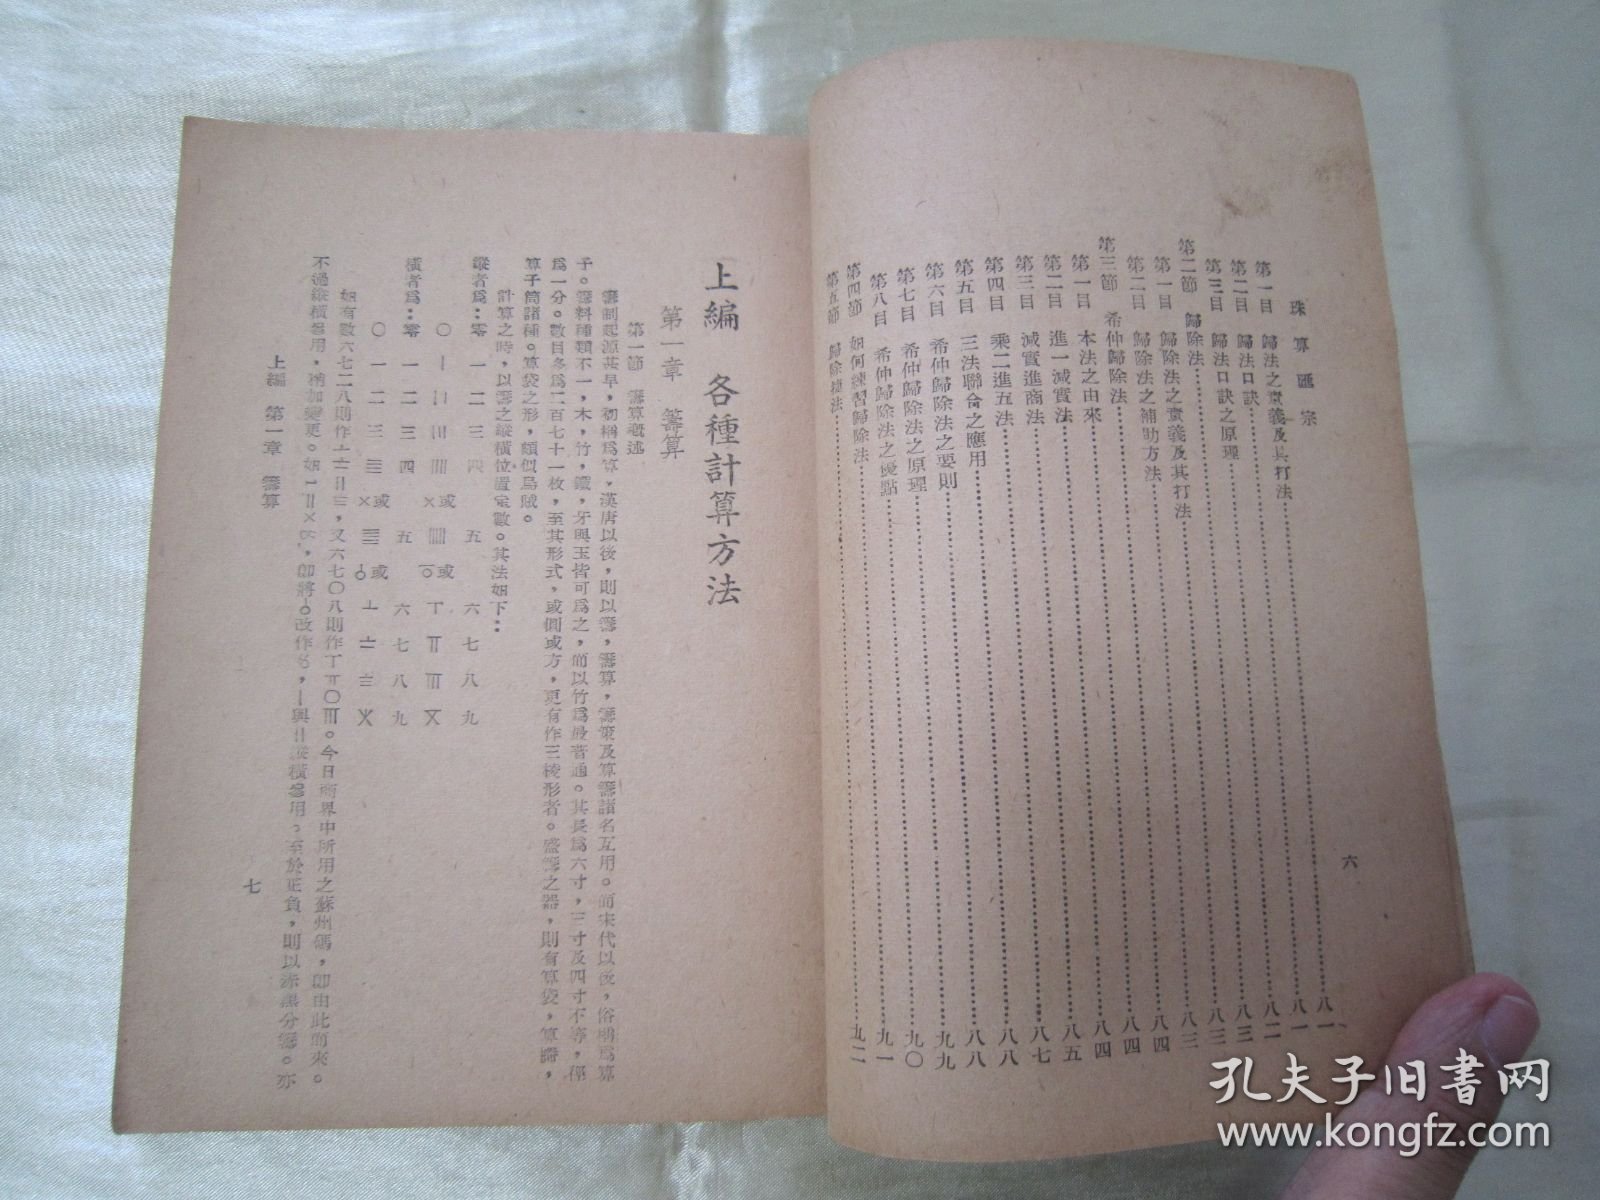 珠算匯宗
六
第一目 歸法之意義及其打法 八一
第二目 歸法口訣 八一
第三目 歸法口訣之原理 八二
第二節 歸除法 八三
第一目 歸除法之意義及其打法 八三
第二目 歸除法之補助方法 八三
第三節 希仲歸除法 八四
第一目 本法之由來 八四
第二目 進一減實法 八四
第三目 減實進商法 八五
第四目 乘二進五法 八七
第五目 三法聯合之應用 八八
第六目 希仲歸除法之要則 八八
第七目 希仲歸除法之原理 九九
第八目 希仲歸除法之優點 九〇
第四節 如何練習歸除法 九一
第五節 歸除捷法 九二
上編 各種計算方法
第一章 籌算
第一節 籌算概述
籌制起源甚早，初稱爲算，漢唐以後，則以籌，籌算，籌策及算籌諸名互用。而宋代以後，俗稱爲算
子。籌料種類不一，木，竹，鐵，牙與玉皆可爲之，而以竹爲最普通。其長爲六寸，三寸及四寸不等，徑
爲一分。數目多爲二百七十一枚，至其形式，或圓或方，更有作三稜形者。盛籌之器，則有算袋，算籌，
算子筒諸種。算袋之形，頗似烏賊。
計算之時，以籌之縱橫位置定數。其法如下：
縱者爲：零 一 二 三 四 五 六 七 八 九
〇 〡 〢 〣 〤或 〥或
橫者爲：零 一 二 三 四 五 六 七 八 九
〇 一 二 三 〤或 〥或
如有數六七二八則作〦〧〢〨，又六七〇八則作〇。今日商界中所用之蘇州碼，卽由此而來。
不過縱橫畧用，稍加變更。如〡〢〤，卽將改作〥，〡與〢縱橫畧用。至於正負，則以赤黑分籌。亦
上編 第一章 籌算
七
孔夫子旧书网
www.kongfz.com